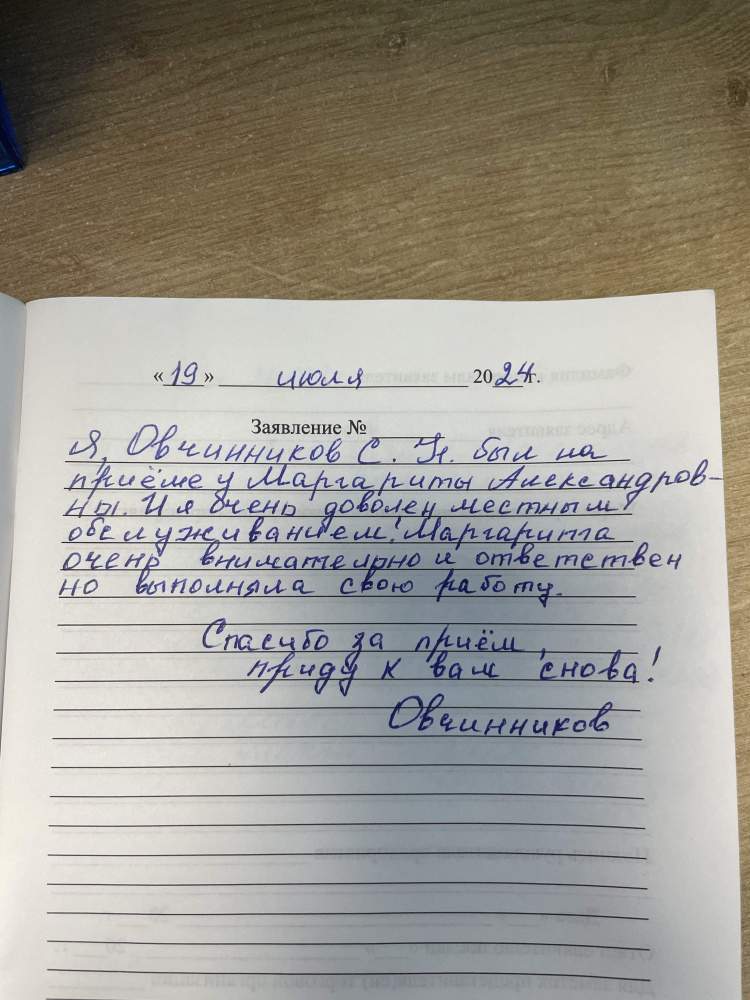 «19» июля 2024г.
Заявление №
Я, Овчинников С. Н. был на
приёме у Маргариты Александров-
ны. И я очень доволен местным
обслуживанием! Маргарита
очень внимательно и ответствен
но выполняла свою работу.
Спасибо за приём,
приду к вам снова!
Овчинников